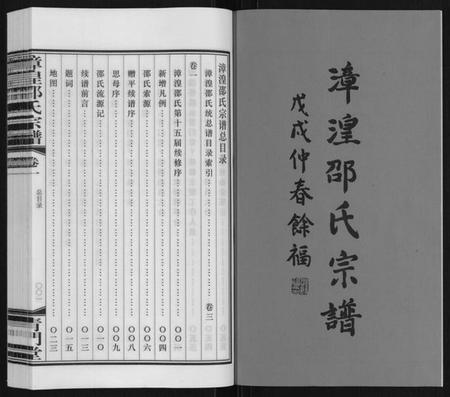 漳湟邵氏宗譜
戊戌仲春餘福
漳湟邵氏宗谱总目录
漳湟邵氏统总谱目录索引……卷三
卷一
漳湟邵氏第十五届续修序……〇〇一
新增凡例……〇〇四
邵氏索源……〇〇六
赠平续谱序……〇〇八
思母序……〇〇九
邵氏流源记……〇一〇
续谱前言……〇一三
题词……〇一五
地图……〇二三
漳湟邵氏宗谱
卷一
总目录
〇〇一
青門堂